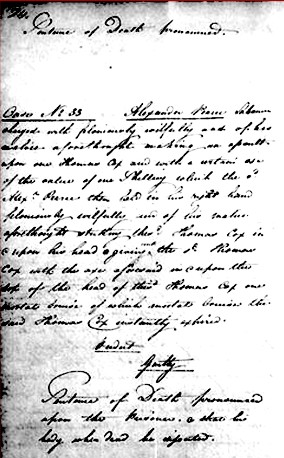 Sentence of Death pronounced.
Case No 33 Alexander Pearce Labourer
charged with feloniously wilfully and of his
malice aforethought making an assault
upon one Thomas Cox and with a certain axe
of the value of one Shilling which the sd
Alexr Pearce then held in his right hand
feloniously wilfully and of his malice
aforethought striking the sd Thomas Cox in
& upon his head & giving the sd Thomas
Cox with the axe aforesaid in & upon the
top of the head of the sd Thomas Cox one
mortal bruise of which mortal bruise the
said Thomas Cox instantly expired.
Verdict
Guilty
Sentence of Death pronounced
upon the Prisoner, & that his
body when dead be dissected.